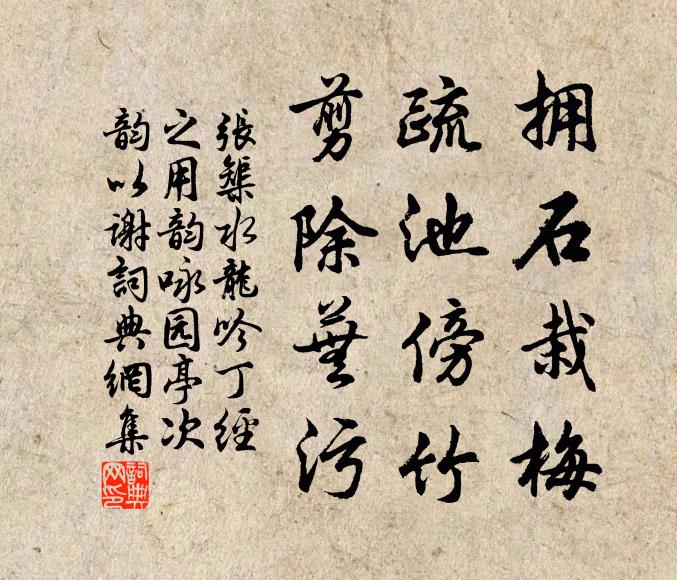 拥石栽梅
疏池傍竹
剪除蕪污
張榘水龍吟丁經
之用韵咏园亭次
韵以谢詞典網集
詞典网印